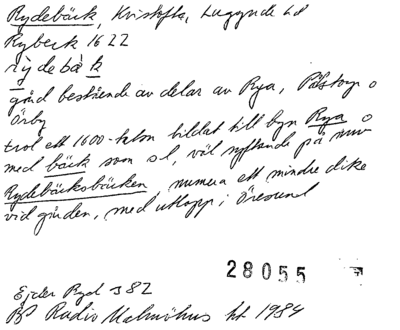 Rydebäck, Kristofta, Luggude hd
Rybeck 1622
rỳdebàk
gård bestående av delar av Rya, Pålstorp o
Örby
trol ett 1600-talon bildat till byn Rya o
med bäck som sl, väl syftande på nuv
Rydebäcksbäcken, numera ett mindre dike
vid gården, med utlopp i Öresund
28055
Ejder Ryd s 82
BP Radio Malmöhus ht 1984